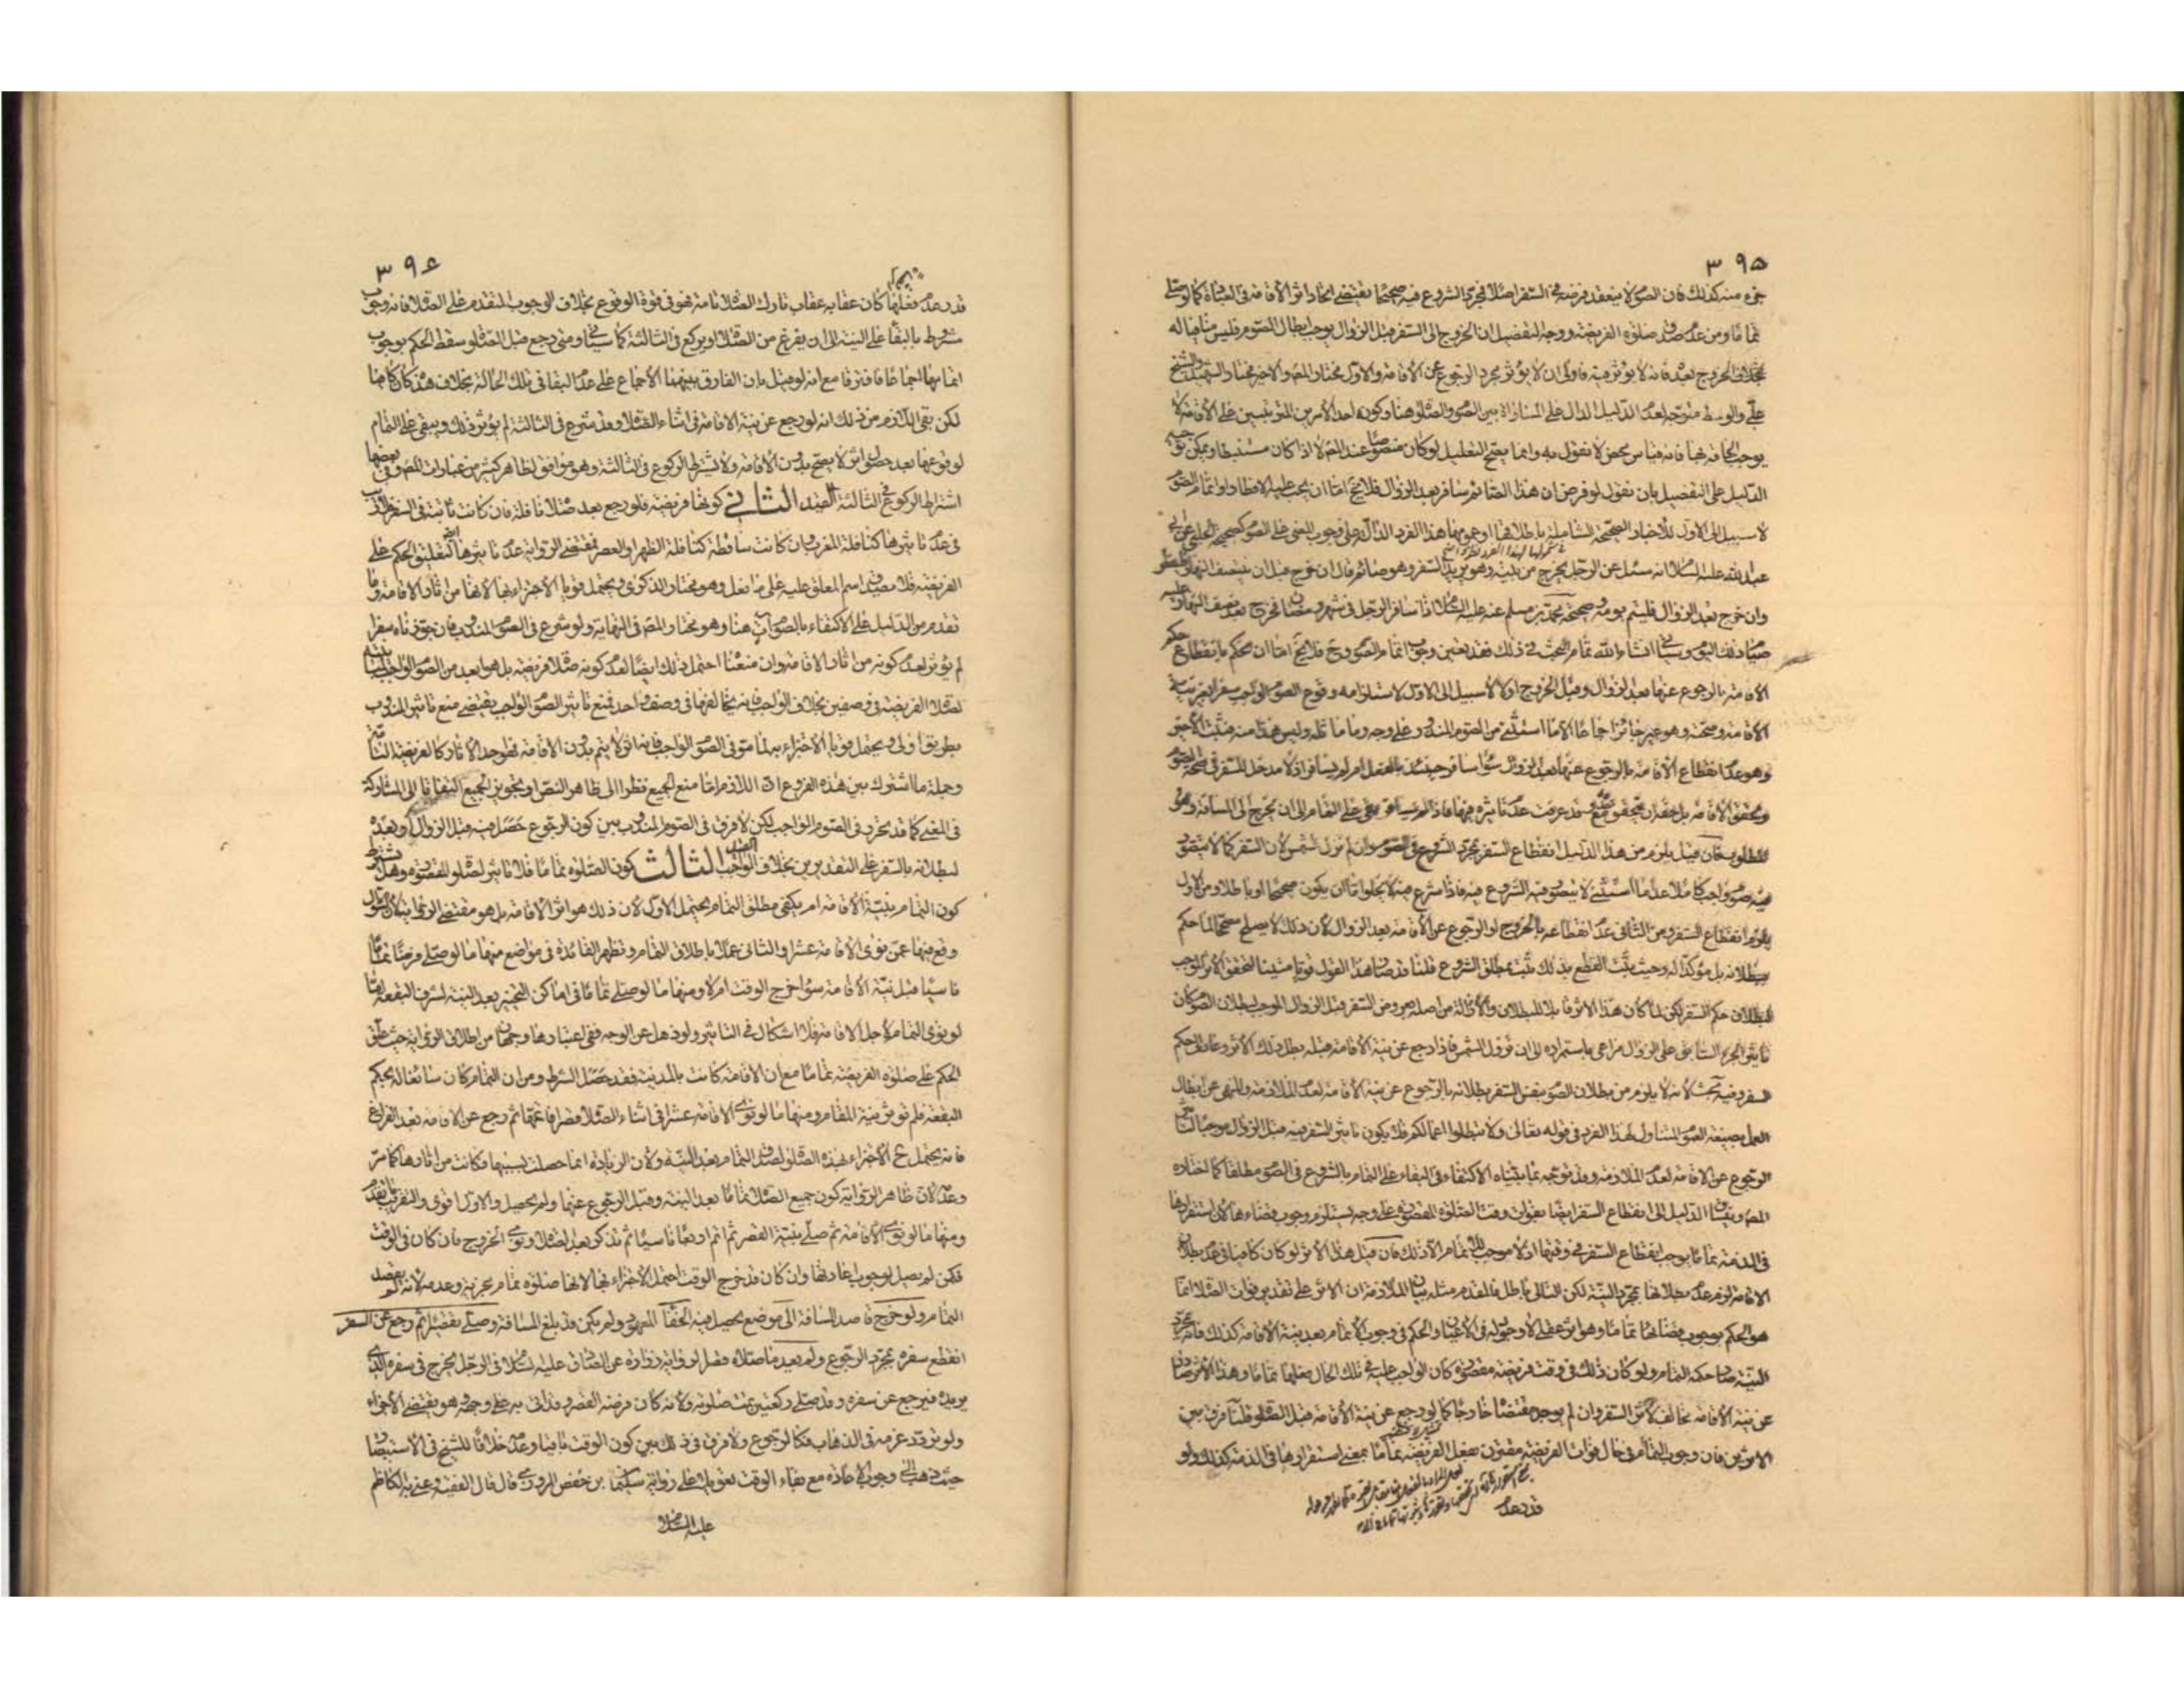 ٣٩٥
جزء منه كذلك فان الصوم لا ينعقد فرضه في السفر اصلا فجرى الشروع فيه صحيحا يقتضي اتحاد اثر الاقامة في العبادة كما لو صلى
تماما ومن عدم صدق صلوة الفريضة ووجه التفصيل ان الخروج الى السفر قبل الزوال يوجب ابطال الصوم فليس منافيا له
بخلاف الخروج بعده فانه لا يؤثر فيه فاولى ان لا يؤثر مجرد الرجوع عن الاقامة والاول مختار المص والاخير مختار الشهيد والشيخ
علي والوسط متوجه لعدم الدليل الدال على المساواة بين الصوم والصلوة هنا وكونه احد الامرين المترتبين على الاقامة لا
يوجب الحاقه بها فانه قياس محض لا نقول به وانما يصح التعليل لو كان منصوصا عند المص لا اذا كان مستنبطا ويمكن توجيه
الدليل على التفصيل بان نقول لو فرض ان هذا الصائم سافر بعد الزوال فلا يخ اما ان يجب عليه الافطار او اتمام الصوم
لا سبيل الى الاول للاخبار الصحيحة الشاملة باطلاقها او عمومها هذا الفرد الدالة على وجوب المضي على الصوم كصحيحة الحلبي عن ابي
عبد الله عليه السلام انه سئل عن الرجل يخرج من بيته وهو يريد السفر وهو صائم قال ان خرج قبل ان ينتصف النهار فليفطر
وان خرج بعد الزوال فليتم يومه وصحيحة محمد بن مسلم عنه عليه السلام اذا سافر الرجل في شهر رمضان فخرج بعد نصف النهار عليه
صيام ذلك اليوم وسياتي انشاء الله تمام البحث في ذلك فقد تعين وجوب اتمام الصوم وح فلا يخ اما ان يحكم بانقطاع حكم
الاقامة بالرجوع عنها بعد الزوال وقبل الخروج او لا لا سبيل الى الاول لاستلزامه وقوع الصوم الواجب سفرا بغير نية
الاقامة وصحته وهو غير جائز اجماعا الا ما استثني من الصوم المنذور على وجه وما ماثله وليس هذا منه فثبت الاخر
وهو عدم انقطاع الاقامة بالرجوع عنها بعد الزوال سواء سافر حينئذ بالفعل ام لم يسافر اذ لا مدخل للسفر في صحة الصوم
وتحقق الاقامة بل حقه ان يحقق عدمها وقد عرفت عدم تاثيره فيها فاذا لم يسافر بقي على التمام الى ان يخرج الى المسافة وهو
المطلوب فان قيل يلزم من هذا الدليل انقطاع السفر بمجرد الشروع في الصوم وان لم تزل الشمس لان السفر كما لا يتصور
فيه صوم واجب كاملا عدا ما استثني لا يتصور فيه الشروع فيه فاذا شرع فيه لا يخلو اما ان يكون صحيحا او باطلا ومن الاول
يلزم انقطاع السفر ومن الثاني عدم انقطاعه بالخروج او الرجوع عن الاقامة بعد الزوال لان ذلك لا يصلح مصححا لما حكم
ببطلانه بل مؤكدا له وحيث يثبت القطع بذلك ثبت بمطلق الشروع قلنا قد صار هذا القول قويا متينا لتحقق الاثر الموجب
لبطلان حكم السفر لكن لما كان هذا الاثر قابلا للبطلان والازالة من اصله بعروض السفر قبل الزوال الموجب لبطلان الصوم كان
تاثير الجزء السابق على الزوال مراعى باستمراره الى ان تزول الشمس فاذا رجع عن نية الاقامة قبله بطل ذلك الاثر وعاد الى حكم
السفر وفيه بحث لانه لا يلزم من بطلان الصوم بنفس السفر بطلانه بالرجوع عن نية الاقامة لعدم الملازمة والنهي عن ابطال
العمل بصيغة العموم المتناول لهذا الفرد في قوله تعالى ولا تبطلوا اعمالكم فلا يكون تاثير السفر فيه قبل الزوال موجبا لتاثير
الرجوع عن الاقامة لعدم الملازمة وقد توجه بما بيناه الاكتفاء في البقاء على التمام بالشروع في الصوم مطلقا كما اختاره
المص وينساق الدليل الى انقطاع السفر ايضا بفوات وقت الصلوة المقصورة على وجه يستلزم وجوب قضاءها لان استقرارها
في الذمة تماما يوجب انقطاع السفر في وقتها اذ لا موجب للاتمام الا ذلك فان قيل هذا الاثر لو كان كافيا في عدم بطلان
الاقامة لزم عدم بطلانها بمجرد النية لكن التالي باطل فالمقدم مثله بيان الملازمة ان الاثر على تقدير فوات الصلوة انما
هو الحكم بوجوب قضائها تماما وهو اثر عقلي لا وجود له في الاعيان والحكم في وجوب الاتمام بعد نية الاقامة كذلك فانه بمجرد
النية صار حكمه التمام ولو كان ذلك في وقت فريضة مقصورة كان الواجب عليه في تلك الحال فعلها تماما وهذا الاثر صادر
عن نية الاقامة مخالف لاثر السفر وان لم يوجد مقتضاه خارجا كما لو رجع عن نية الاقامة قبل الصلوة قلنا فرق بين
الاثرين فان وجوب التمام في حال فوات الفريضة مقترن بفعل الفريضة تماما بمعنى استقرارها في الذمة كذلك ولو
قدر عدم
٣٩٤
قدر عدم فعلها كان عقابه عقاب تارك الصلوة تامة فهو في قوة الوقوع بخلاف الوجوب المتقدم على الصلوة فانه وجوب
مشروط بالبقاء على النية الى ان يفرغ من الصلوة او يركع في الثالثة كما سياتي ومتى رجع قبل الصلوة سقط الحكم بوجوب
اتمامها اجماعا فافترقا مع انه لو قيل بان الفارق بينهما الاجماع على عدم البقاء في تلك الحالة بخلاف هذه كان كافيا
لكن بقي اللازم من ذلك انه لو رجع عن نية الاقامة في اثناء الصلوة وقد شرع في الثالثة لم يؤثر ذلك ويبقى على التمام
لوقوعها بعد حصول اثر لا يصح بدون الاقامة ولا يشترط الركوع في الثالثة وهو موافق لظاهر كثير من عبارات المص وفي بعضها
اشتراط الركوع في الثالثة القيد الثاني كونها فريضة فلو رجع بعد صلاة نافلة فان كانت ثابتة في السفر فلا ريب
في عدم تاثيرها كنافلة المغرب وان كانت ساقطة كنافلة الظهر او العصر فمقتضى الرواية عدم تاثيرها ايضا لتعليق الحكم على
الفريضة فلا يصدق اسم المعلق عليه على ما فعل وهو مختار الذكرى ويحتمل قويا الاجتزاء بها لانها من اثار الاقامة ولما
تقدم من الدليل على الاكتفاء بالصوم اب هنا وهو مختار المص في النهاية ولو شرع في الصوم المندوب فان جوزناه سفرا
لم يؤثر لعدم كونه من اثار الاقامة وان منعناه احتمل ذلك ايضا لعدم كونه صلاة فريضة بل هو ابعد من الصوم الواجب لمباينته
لصلاة الفريضة في وصفين بخلاف الواجب فانه يخالفها في وصف واحد فمنع تاثير الصوم الواجب يقتضي منع تاثير المندوب
بطريق اولى ويحتمل قويا الاجتزاء به لما مر في الصوم الواجب فانه اثر لا يتم بدون الاقامة فهو احد الاثار كالفريضة التامة
وجملة ما اشترك بين هذه الفروع ان اللازم اما منع الجميع نظرا الى ظاهر النص او تجويز الجميع التفاتا الى المشاركة
في المعنى كما قد يحرر في الصوم الواجب لكن لا فرق في الصوم المندوب بين كون الرجوع حصل فيه قبل الزوال او بعده
لبطلانه بالسفر على التقديرين بخلاف الواجب القيد الثالث كون الصلوة تماما فلا تاثير لصلوة المقصورة وهل يشترط
كون التمام بنية الاقامة ام يكفي مطلق التمام يحتمل الاول لان ذلك هو اثر الاقامة بل هو مقتضى الرواية لان السؤال
وقع فيها عمن نوى الاقامة عشرا والثاني عملا باطلاق التمام وتظهر الفائدة في مواضع منها ما لو صلى فرضا تماما
ناسيا قبل نية الاقامة سواء خرج الوقت ام لا ومنها ما لو صلى تماما في اماكن التخيير بعد النية لشرف البقعة اما
لو نوى التمام لاجل الاقامة فلا اشكال في التاثير ولو ذهل عن الوجه ففي اعتبارها وجهان من اطلاق الرواية حيث علق
الحكم على صلوة الفريضة تماما مع ان الاقامة كانت بالمدينة فقد حصل الشرط ومن ان التمام كان سائغا له بحكم
البقعة فلم تؤثر نية المقام ومنها ما لو نوى الاقامة عشرا في اثناء الصلاة قصرا فاتمها ثم رجع عن الاقامة بعد الفراغ
فانه يحتمل ح الاجتزاء بهذه الصلوة لصدق التمام بعد النية ولان الزيادة انما حصلت بسببها فكانت من اثارها كما مر
وعدمه لان ظاهر الرواية كون جميع الصلاة تماما بعد النية وقبل الرجوع عنها ولم يحصل والاول اقوى والتقريب ما تقدم
ومنها ما لو نوى الاقامة ثم صلى بنية القصر ثم اتم اربعا ناسيا ثم تذكر بعد الصلاة ونوى الخروج فان كان في الوقت
فكمن لم يصل لوجوب اعادتها وان كان قد خرج الوقت احتمل الاجتزاء بها لانها صلوة تمام مجزية وعدمه لانه لم يقصد
التمام ولو خرج قاصد المسافة الى موضع يحصل فيه الخفاء المعهود ولم يكن قد بلغ المسافة وصلى بقصر ثم رجع عن السفر
انقطع سفره بمجرد الرجوع ولم يعد ما صلاه قصرا لرواية زرارة عن الصادق عليه السلام في الرجل يخرج في سفره الذي
يريده فيرجع عن سفره وقد صلى ركعتين تمت صلوته ولانه كان فرضه القصر وقد اتى به على وجهه وهو يقتضي الاجزاء
ولو تردد عزمه في الذهاب فكالرجوع ولا فرق في ذلك بين كون الوقت باقيا وعدمه خلافا للشيخ في الاستبصار
حيث ذهب الى وجوب الاعادة مع بقاء الوقت تعويلا على رواية سليمان بن حفص المروزي قال قال الفقيه وعني به الكاظم
عليه السلام